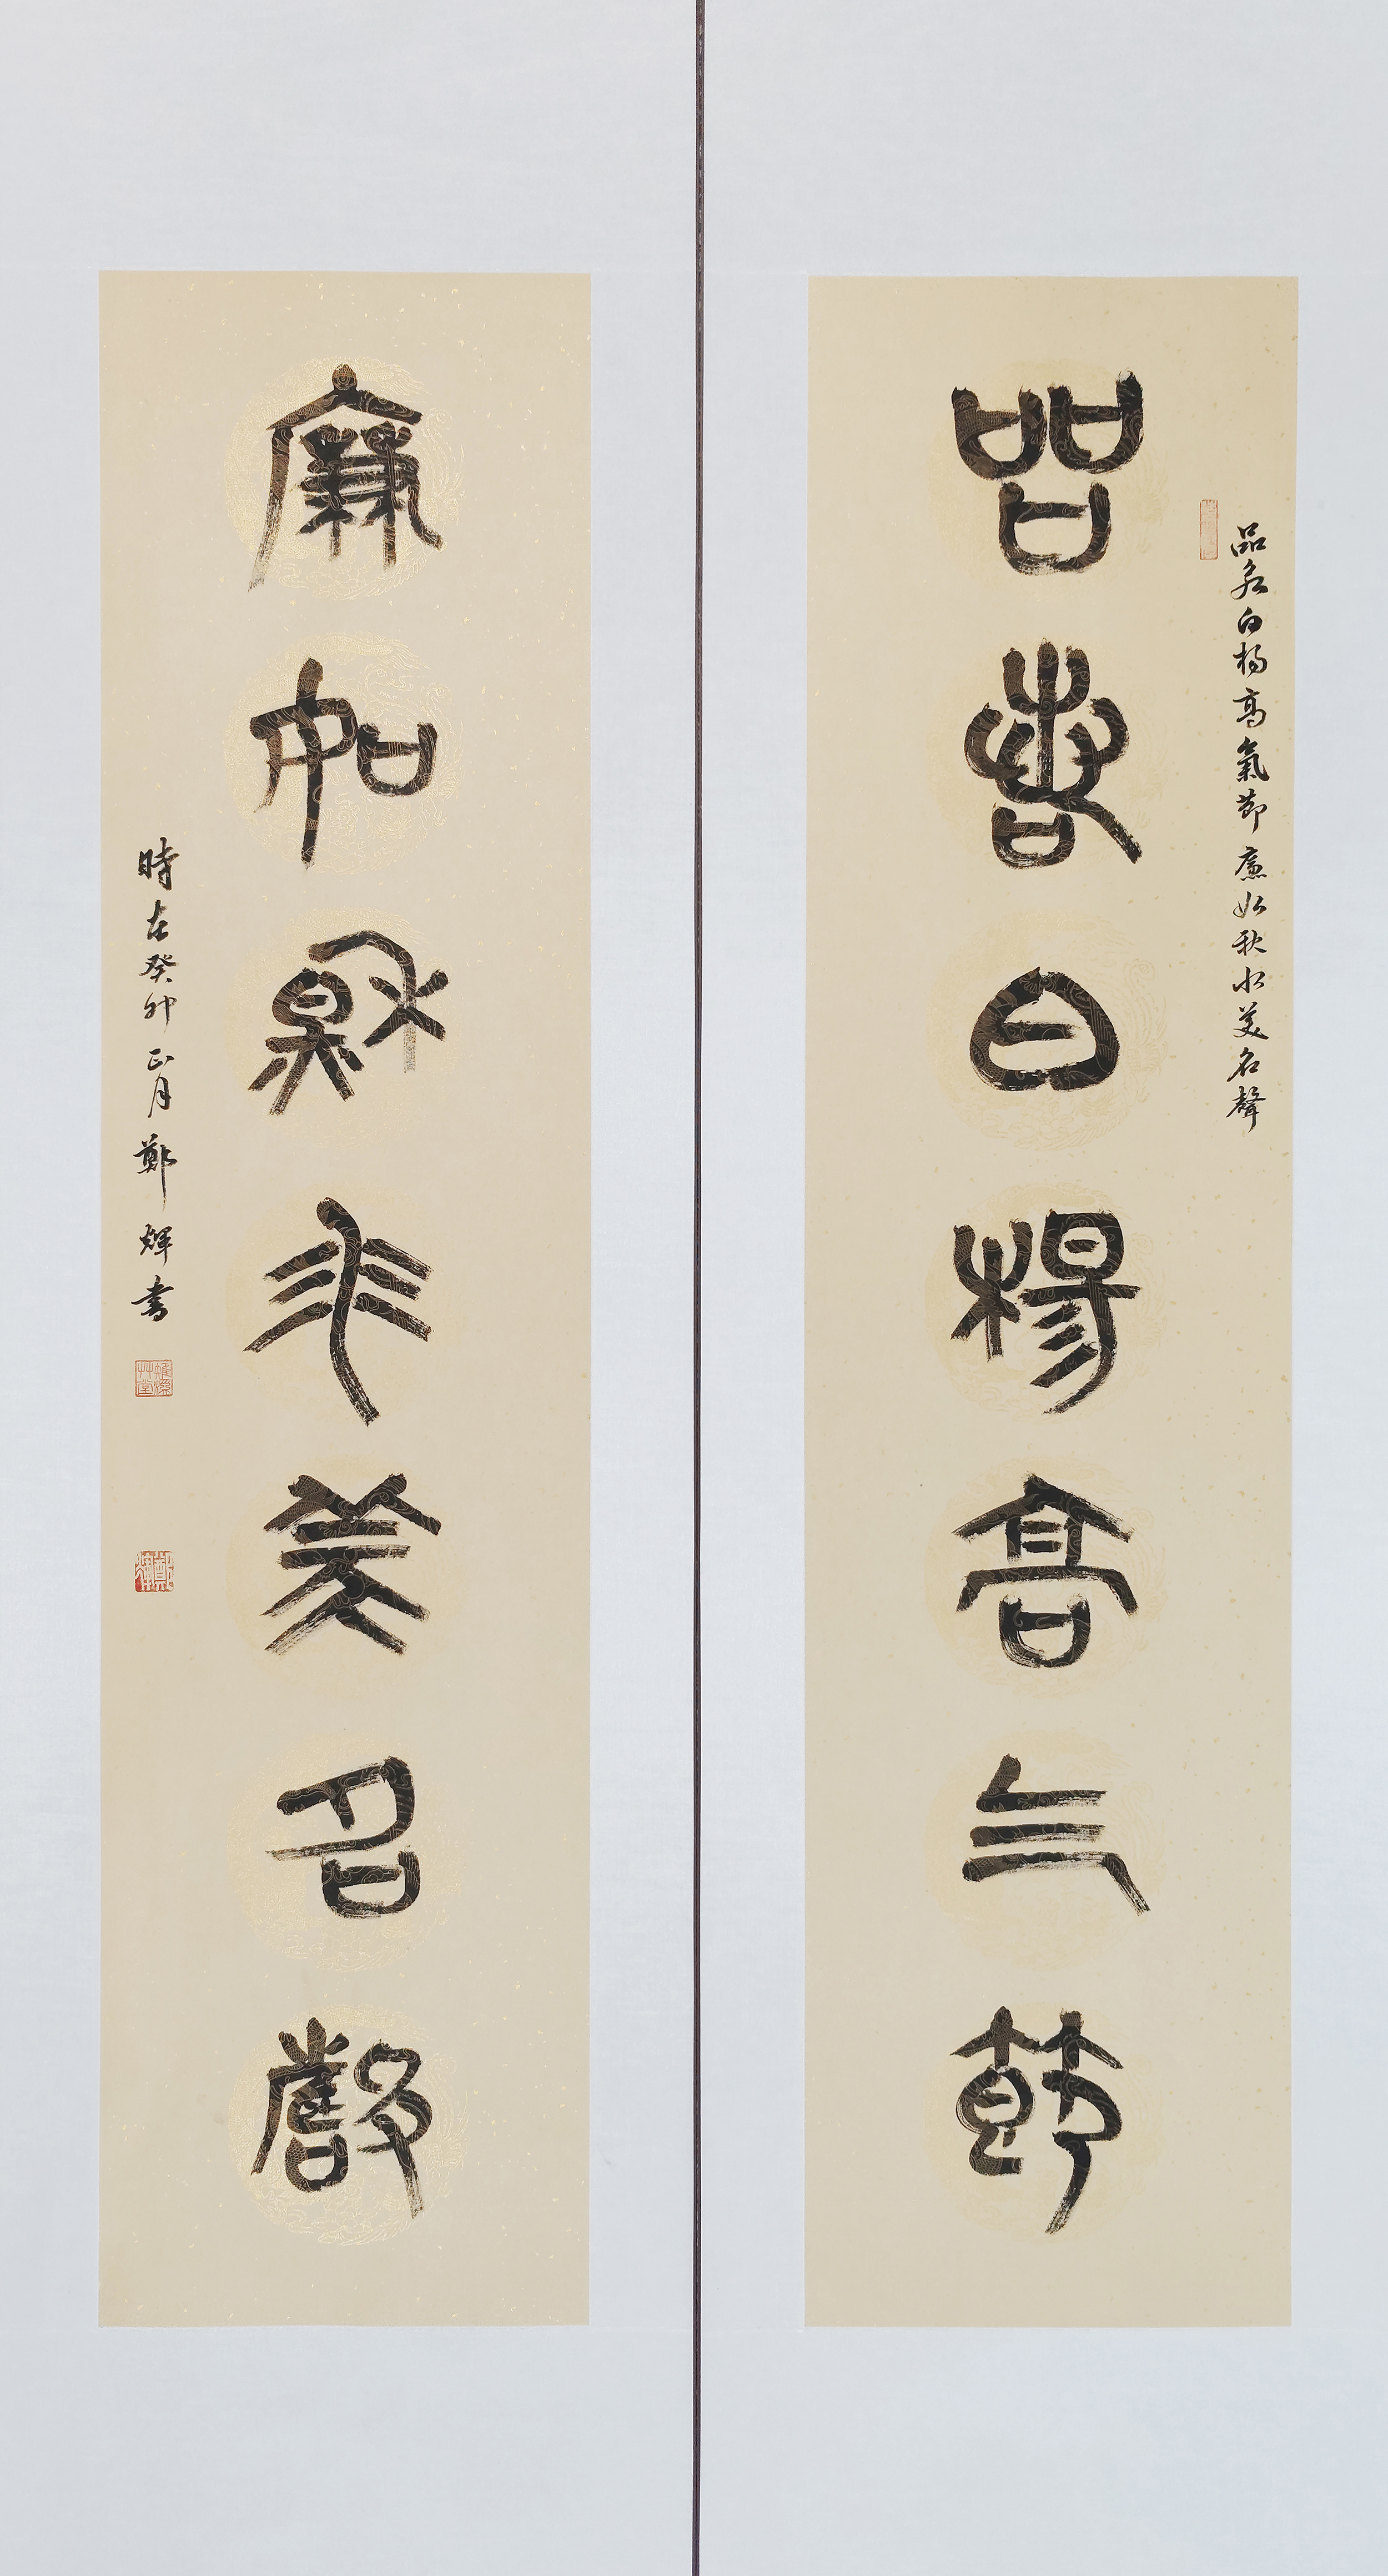 品若白楊高氣節廉如秋水美名聲
品若白楊高气節
廉如秋水美名聲
時在癸卯正月鄭煇書
鄭煇